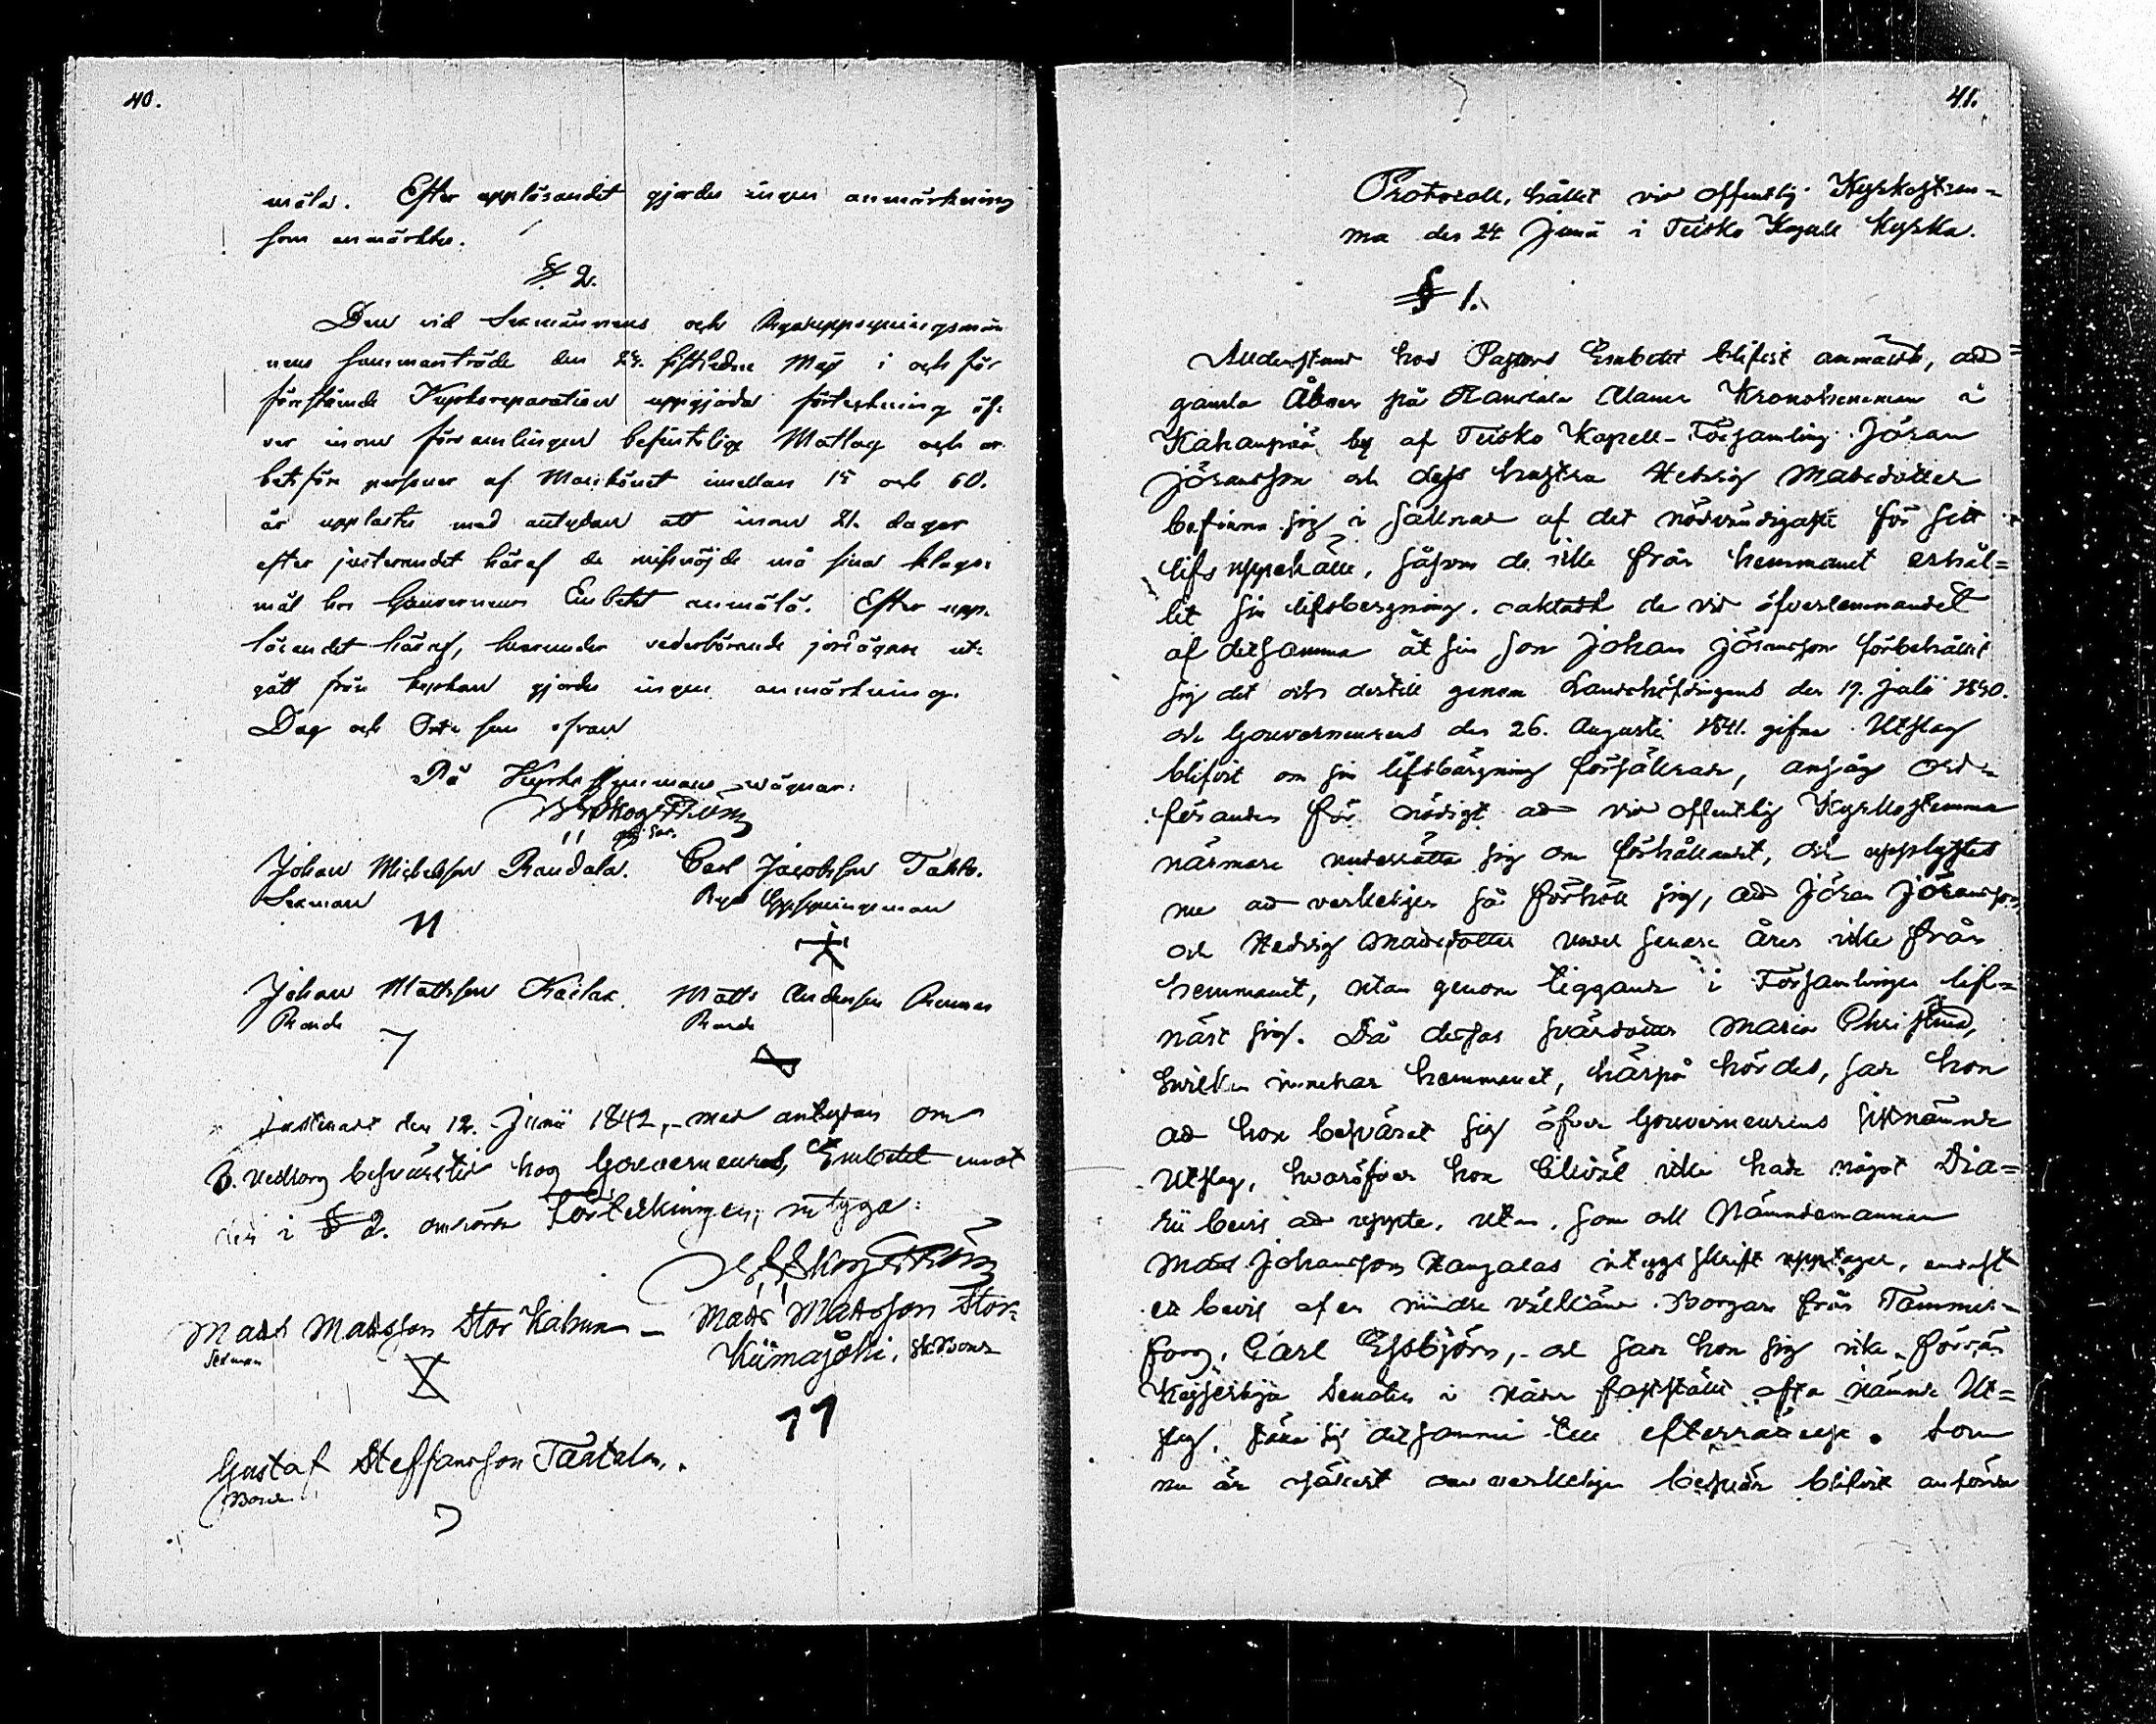 40.
mäla. Efter uppläsandet gjordes ingen anmärkning
som anmärktes.
§ 2.
Den vid Sexmännens och Byauppsyningsmän
nens sammanträde den 24. sistledne Maji i och för
förestående Kyrkoreparation uppgjorda förteckning öf-
ver inom församlingen befintlige Matlag och ar
betsföre personer af Mankönet imellan 15 och 60.
år upplästes med antydan att inom 21. dagar
efter justerandet häraf de missnöjde må sina klago-
mål hos Gouverneurs Embetet anmäla. Efter upp-
läsandet häraf, hvarunder vederbörande jordägare ut-
gått från kyrkan gjordes ingen anmärkning.
Dag och Ort som ofvan
På Kyrkostämmans wägnar:
Skogström
Johan Michelsson Raudala. Carl Jacobsson Takko.
Sexman Bya Uppsyningsman
Johan Mattsson Kaila Matts Andersson
Bonde Bonde
Justeradt den 12. Junii 1842, med antydan om
Besvärstid hos Gouverneurs Embetet emot
den i § 2. omrörde Förteckningen, intyga:
Skogström
Mats Matsson Stor Kahra Mats Matsson Stor-
Sexman Kiimajoki,
Gustaf Steffansson Taatala.
Bonde
41.
Protocoll, hållet vid offentlig Kyrkostäm-
ma den 24 Junii i Teisko Kapell Kyrka.
§ 1.
Alldenstund hos Pastors Embetet blifvit anmäldt, att
gamla Åboen på Kronohemman i
Kahanpää by af Teisko Kapell-Församling Jöran
Jöransson och dess hustru Hedvig Matsdotter
befinna sig i saknad af det nödvändigaste för sitt
lifs uppehälle, såsom de icke från hemmanet erhål-
lit sin lifsbergning, oaktadt de vid öfverlemnandet
af detsamma åt sin son Johan Jöransson förbehållit
sig det och dertill genom Landshöfdingens den 17. Julii 1840.
och Gouverneurens den 26. Augusti 1841. gifne Utslag
blifvit om sin lifsbärgning försäkrade, ansåg Ord-
föranden för nödigt att vid offentlig Kyrkostemma
närmare underrätta sig om förhållandet, och upplystes
nu att verkeligen så förhöll sig, att Jöran Jöransson
och Hedvig Matsdotter under senare åren icke från
hemmanet, utan genom tiggande i Församlingen lif-
närt sig. Då deras svärdotter Maria Christina,
hvilken innehar hemmanet, härpå hördes, sade hon
att hon besvärat sig öfver Gouverneurens sistnämnde
Utslag, hvaröfver hon likväl icke hade något Dia-
rii bevis att uppte, utan, som ock Nämndemannen
Mats Johansson Kangalas intygs skrift upptager, endast
ett bevis af en mindre välkänd Borgare från Tammer-
fors, Carl Essbjörn, och sade hon sig icke förrän
Kejserliga Senaten i nåder fastställt ofta nämnde Ut-
slag, ställa sig detsamma till efterrättelse. Som
nu är osäkert om verkeligen besvär blifvit anförde